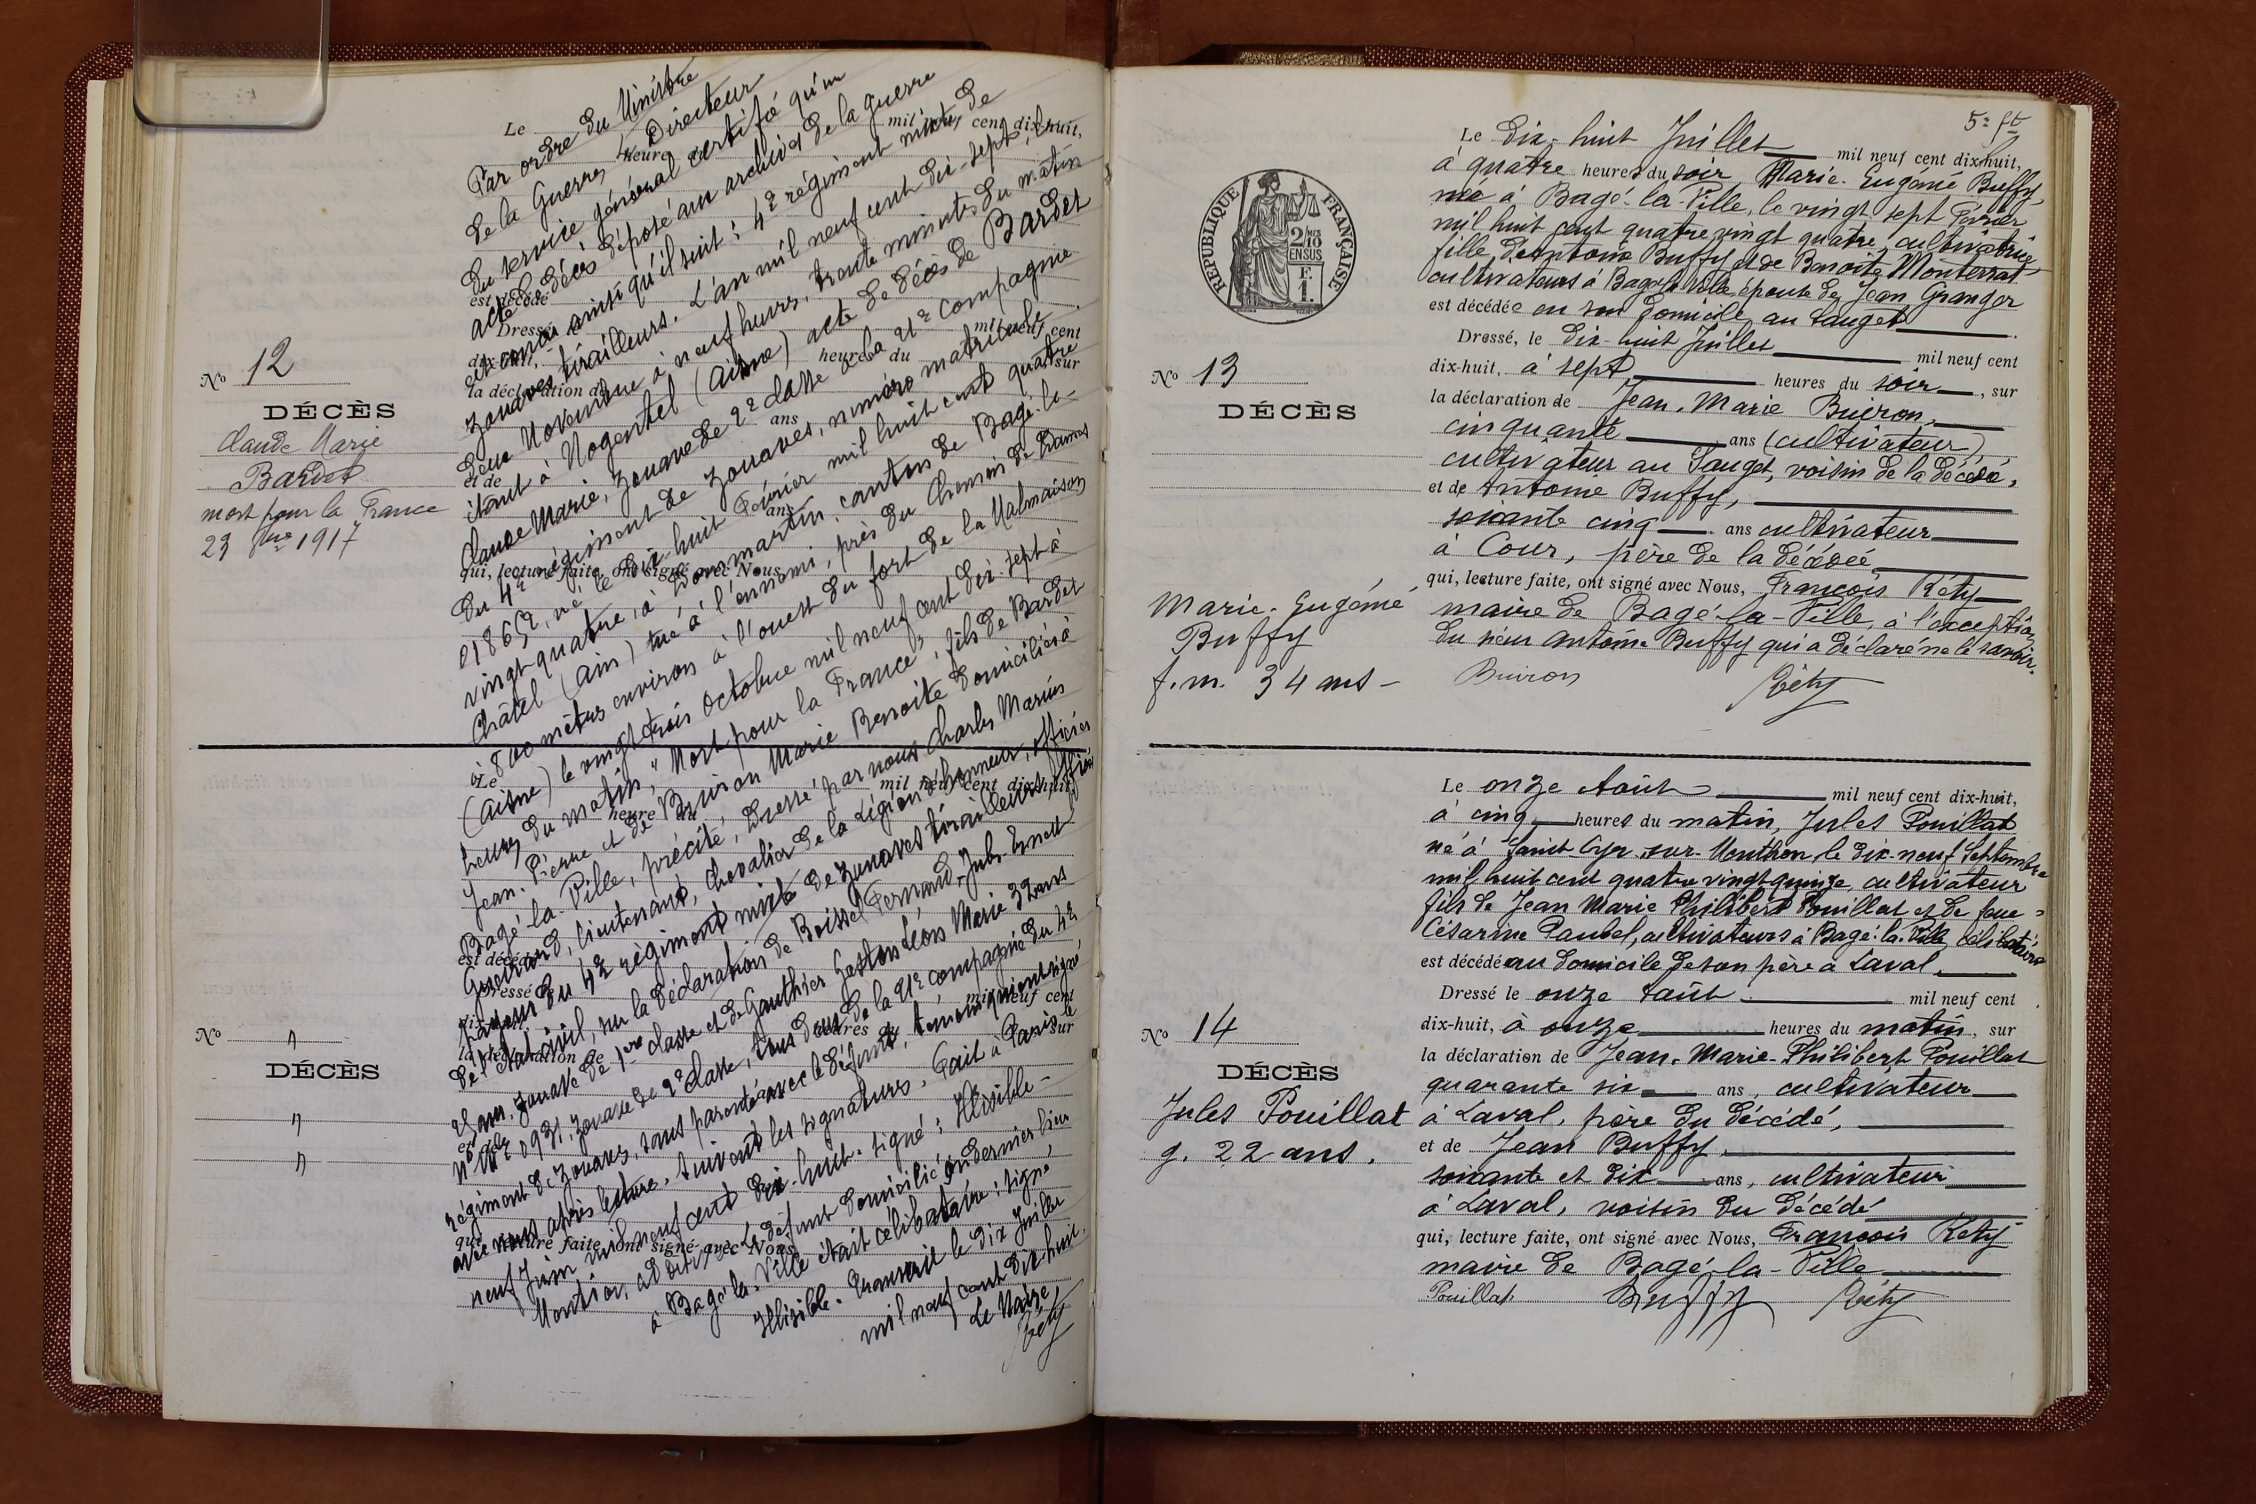 Par ordre du Ministre
de la Guerre, le Directeur
du service général certifie qu'un
acte de décès déposé aux archives de la guerre
est conçu ainsi qu'il suit : 4e régiment mixte de
zouaves tirailleurs. L'an mil neuf cent dix-sept, le
deux Novembre à neuf heures, trente minutes du matin
étant à Nogentel (Aisne) acte de décès de Bardet
Claude Marie, zouave de 2e classe à la 21e compagnie
du 4e régiment de zouaves, numéro matricule
né le dix-huit Février mil huit cent quatre
vingt quatre, à Dommartin, canton de Bagé-le-
Châtel (Ain) tué à l'ennemi, près du Chemin de Dames
à 800 mètres environ à l'ouest du fort de la Malmaison
(Aisne) le vingt trois Octobre mil neuf cent dix-sept à
heures du matin, "Mort pour la France", fils de Bardet
Jean-Pierre et de Buiron Marie Benoite domiciliés à
Bagé-la-Ville, précité, Dressé par nous Charles Marius
lieutenant, Chevalier de la Légion d'honneur, officier
payeur du 4e régiment mixte de zouaves tirailleurs, officier
de l'état civil, sur la déclaration de Boissel Fernand, Jules
ans, zouave de 1ère classe et de Gauthier Gaston Léon Marie 32 ans
zouave de 2e classe, tous deux de la 21e compagnie du 4e
régiment de zouaves, sans parenté avec le défunt, témoins qui ont signé
avec nous après lecture. Suivent les signatures. Fait à Paris le
neuf Juin mil neuf cent dix-huit. signé : Illisible -
Mention Le défunt domicilié en dernier lieu
à Bagé-la-Ville était célibataire : signé
Illisible. Transcrit le dix Juillet
mil neuf cent dix-huit.
Le Maire,
Réty
Le mil neuf cent dix-huit,
heure du
est décédé
Dressé le mil neuf cent
dix-huit, heures du sur
la déclaration de
ans
et de
ans
qui, lecture faite, ont signé avec Nous,
No 12
DÉCÈS
Claude Marie
Bardet
mort pour la France
23 8bre 1917
Le mil neuf cent dix-huit,
heure du
est décédé
Dressé le mil neuf cent
heures du sur
la déclaration de
et de
qui, lecture faite, ont signé avec Nous,
No "
DÉCÈS
"
"
5e ft
RÉPUBLIQUE FRANÇAISE
2/10
EN SUS
F.
1.
Le dix-huit Juillet mil neuf cent dix-huit,
à quatre heures du soir, Marie-Eugénie Buffy,
née à Bagé-la-Ville, le vingt sept Février
mil huit cent quatre vingt quatre, cultivatrice,
fille d'Antoine Buffy et de Benoite Monterrat
cultivateurs à Bagé-la-Ville, épouse de Jean Granger
est décédée en son domicile au Sauget.
Dressé, le dix-huit Juillet mil neuf cent
dix-huit, à sept heures du soir, sur
la déclaration de Jean-Marie Buiron,
cinquante ans (cultivateur)
cultivateur au Sauget, voisin de la décédé,
et de Antoine Buffy,
soixante cinq ans cultivateur
à Cour, père de la décédée
qui, lecture faite, ont signé avec Nous, François Réty
maire de Bagé-la-Ville, à l'exception
du sieur Antoine Buffy qui a déclaré ne le savoir.
Buiron Réty
No 13
DÉCÈS
Marie-Eugénie
Buffy
f. m. 34 ans -
Le onze Août mil neuf cent dix-huit,
à cinq heures du matin, Jules Pouillat
né à Saint-Cyr-sur-Menthon, le dix-neuf Septembre
mil huit cent quatre vingt quinze, cultivateur
fils de Jean Marie Philibert Pouillat et de feue
Césarine Paubel, cultivateurs à Bagé-la-Ville célibataire
est décédé au domicile de son père à Laval.
Dressé le onze Août mil neuf cent
dix-huit, à onze heures du matin, sur
la déclaration de Jean-Marie-Philibert Pouillat
quarante six ans, cultivateur
à Laval, père du décédé,
et de Jean Buffy,
soixante et dix ans, cultivateur
à Laval, voisin du décédé
qui, lecture faite, ont signé avec Nous, François Réty
maire de Bagé-la-Ville
Pouillat Buffy Réty
No 14
DÉCÈS
Jules Pouillat
g. 22 ans.